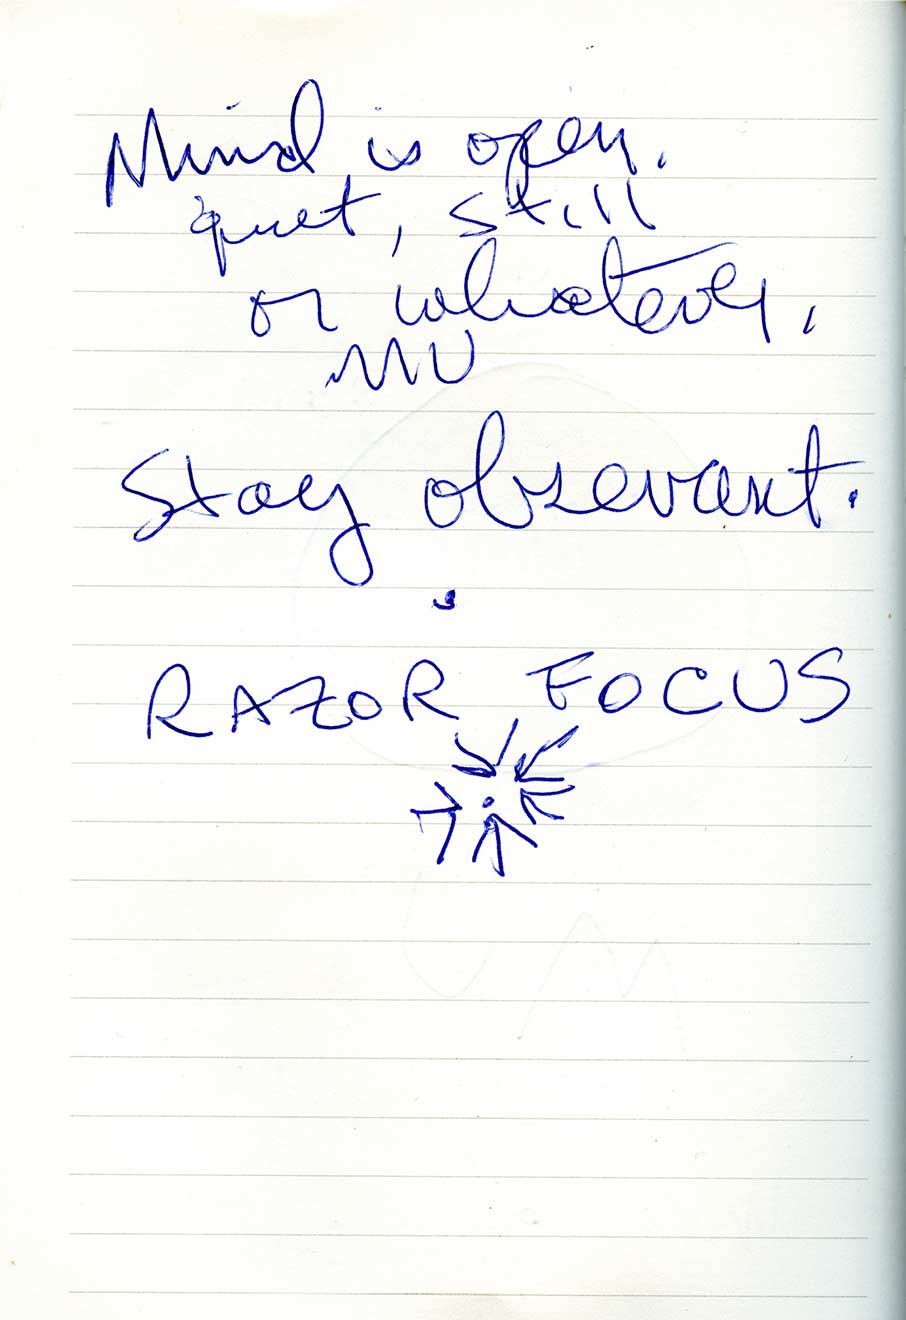 Mind is open.
quet, still
or whatever,
MU
Stay obsevant.
RAZOR FOCUS